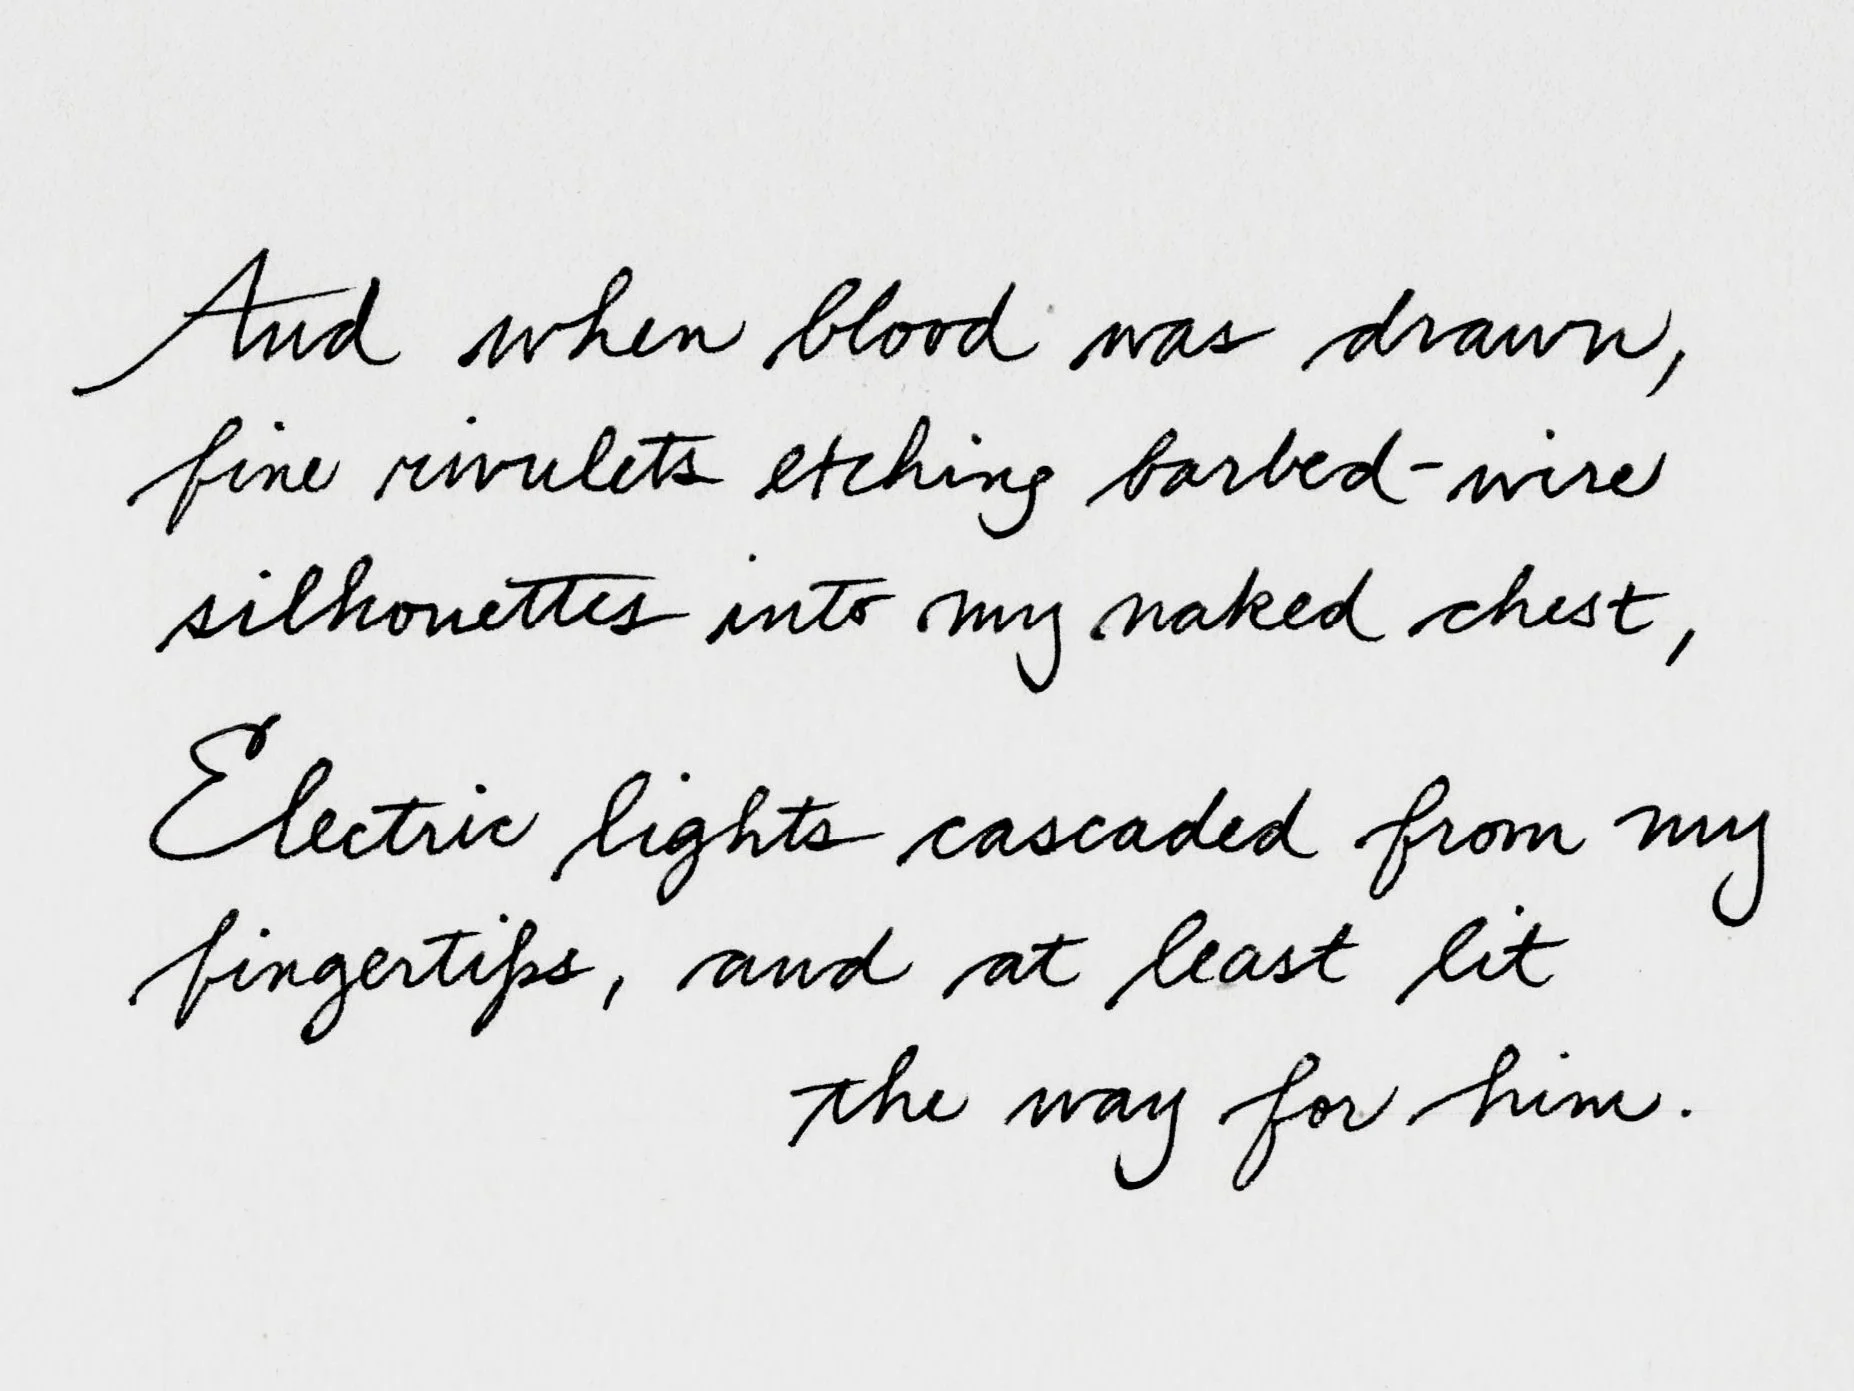 And when blood was drawn,
fine rivulets etching barbed-wire
silhouettes into my naked chest,
Electric lights cascaded from my
fingertips, and at least lit
the way for him.